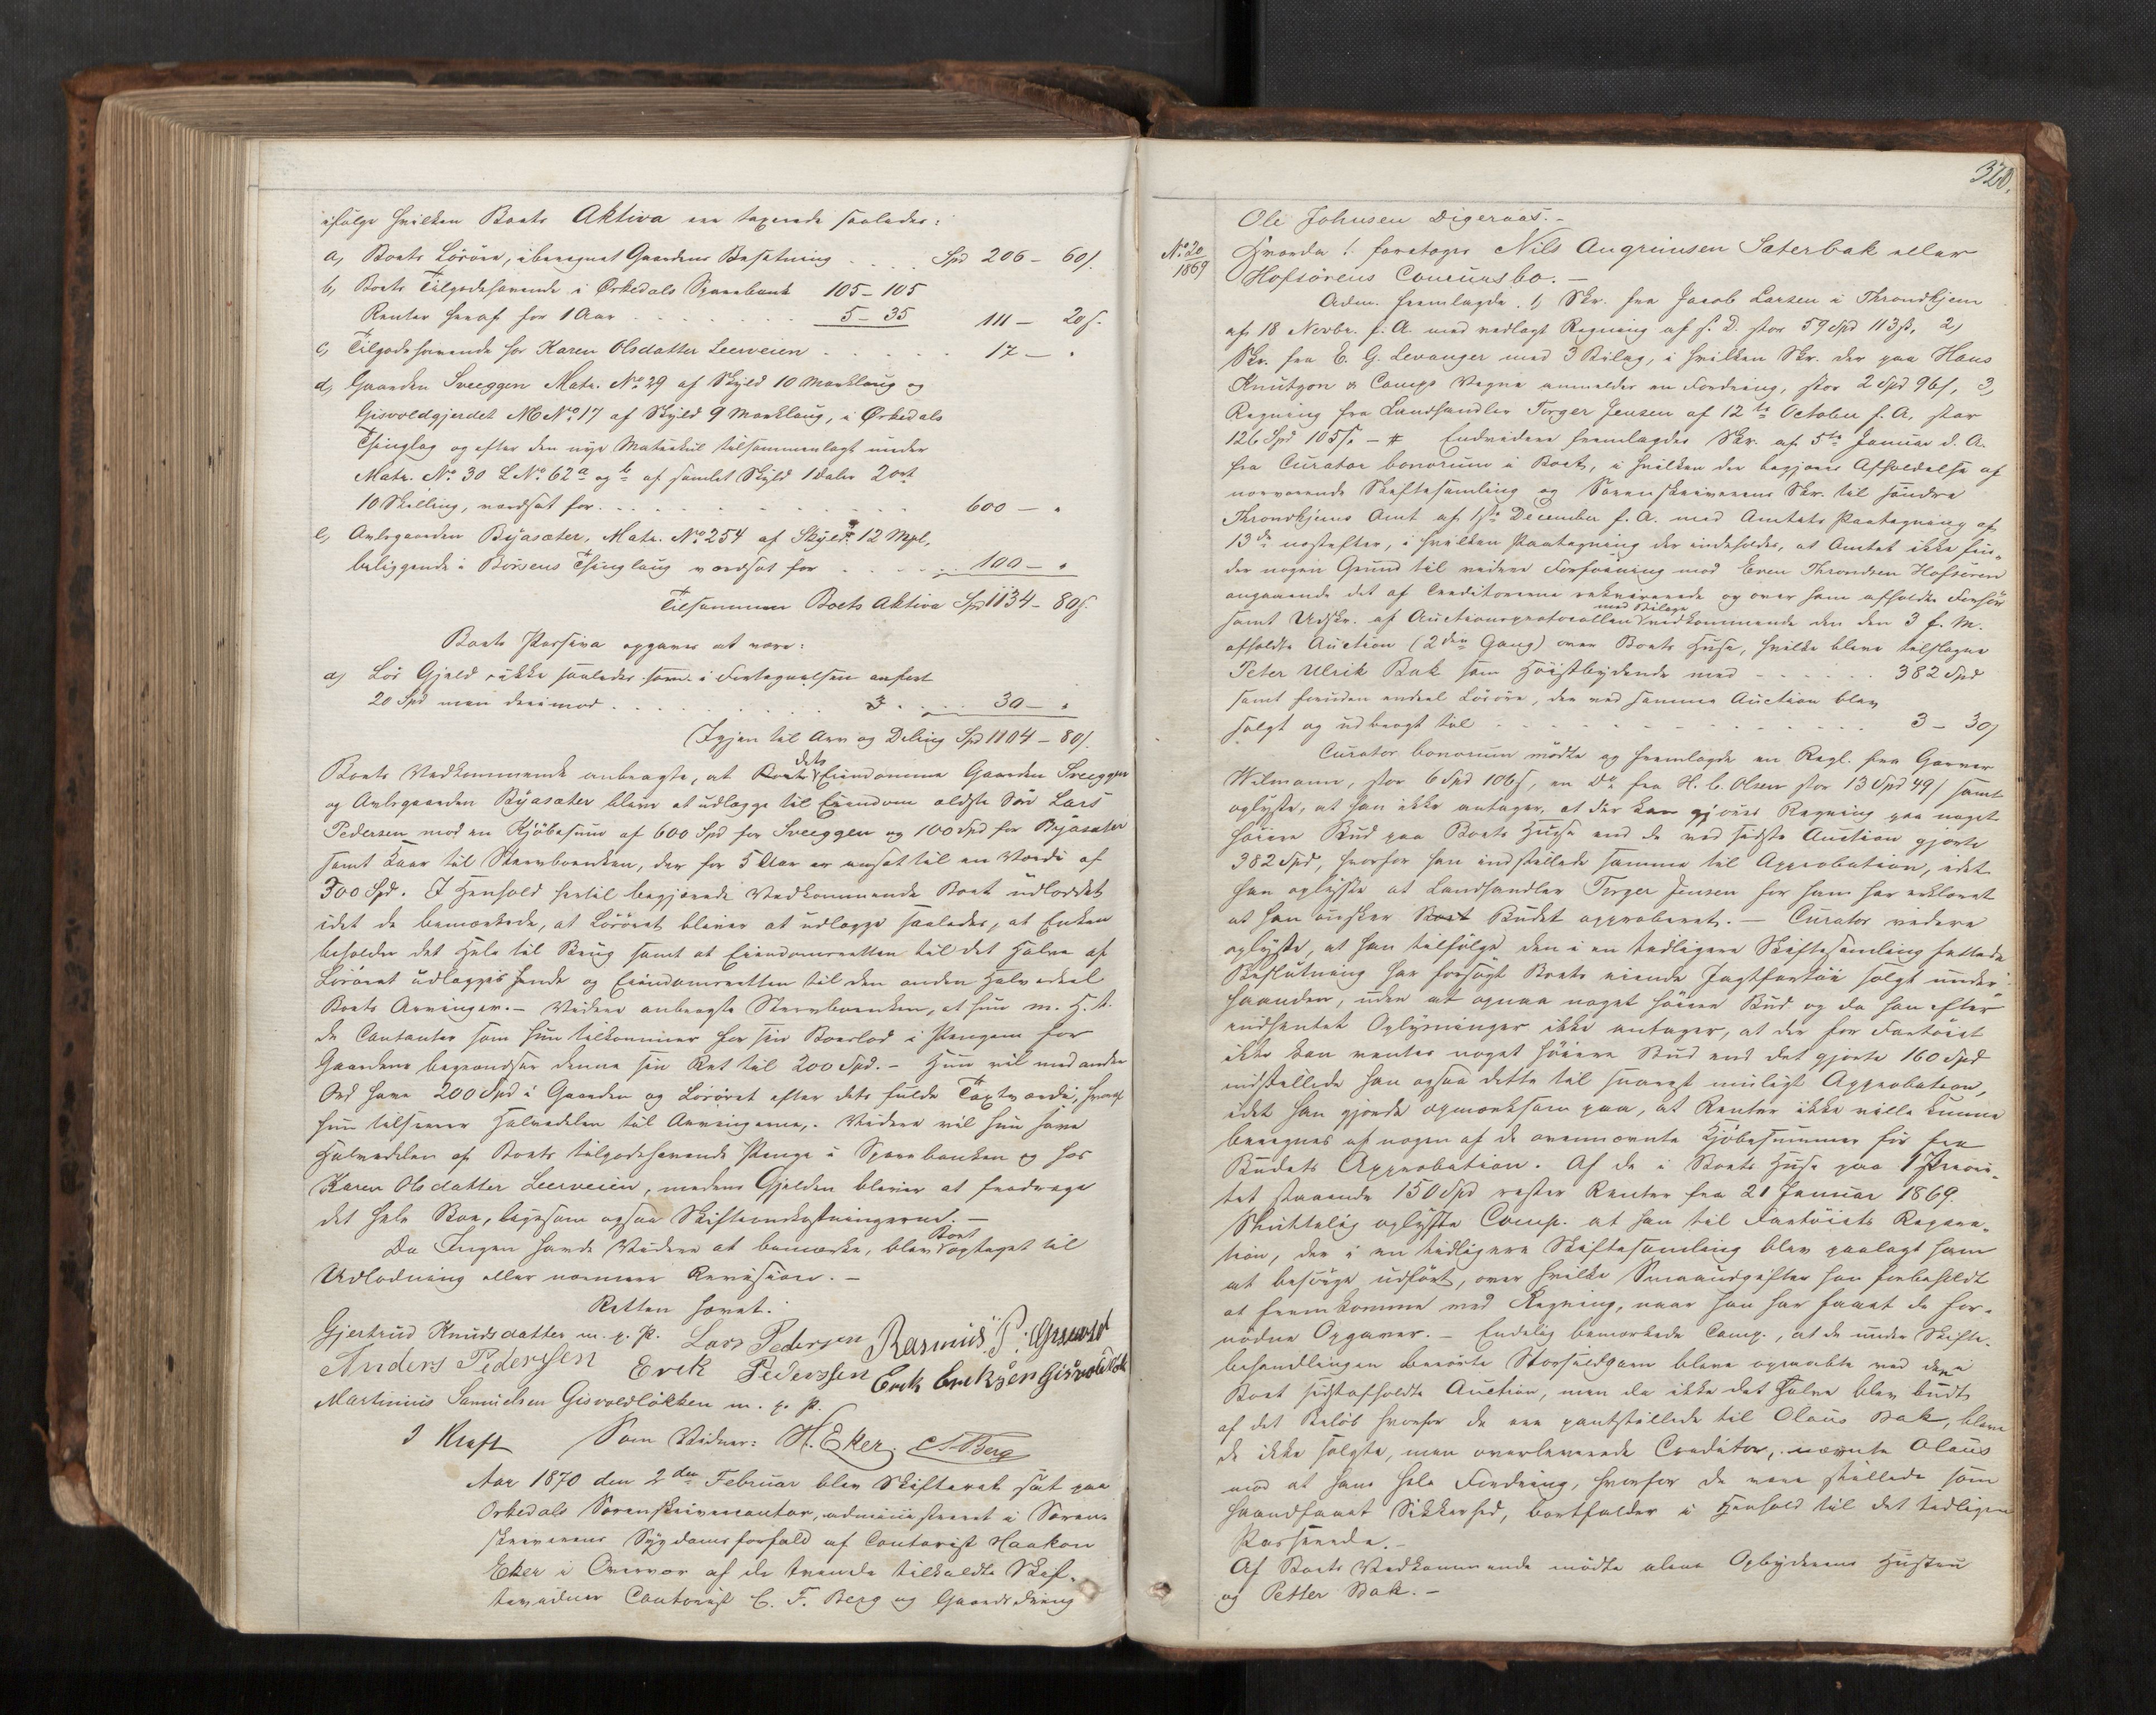 ifølge hvilken Boets Aktiva ere taxerede saaledes:
a, Boets Løsøre, iberegnet Gaardens Besætning . . . . Spd 206 - 60ß.
b, Boets Tilgodehavende i Ørkedals Sparebank 105 - 105
Renter heraf for 1 Aar . . . . . . . 5 - 35 111 - 20ß.
c, Tilgodehavende hos Karen Olsdatter Leerveien . . . . . 17 - "
d, Gaarden Sveeggen Matr. No 29 af Skyld 10 Marklaug og
Gisvoldgjerdet M No 17 af Skyld 9 Marklaug, i Ørkedals
Thinglag og efter den nye Matrikul tilsammenlagt under
Matr. No. 30 L No. 62a og b af samlet Skyld 1 Daler 2 ort
10 Skilling, værdsat for . . . . . . . . . 600 - "
e, Avlsgaarden Byasæter, Matr. No 254 af Skyld 12 Mpl,
beliggende i Børsens Thinglaug værdsat for . . . . . 100 - "
Tilsammen Boets Aktiva Spd 1134 - 80ß.
Boets Passiva opgaves at være:
a, Løs Gjæld, ikke saaledes som i Fortegnelsen anført
20 Spd men derimod . . . . . . . . . . 30 - "
Igjen til Arv og Deling Spd 1104 - 80ß.
dets
Boets Vedkommende anbragte, at Boets Eiendomme Gaarden Sveeggen
og Avlsgaarden Byasæter bliver at udlægge til Eiendom ældste Søn Lars
Pedersen mod en Kjøbesum af 600 Spd for Sveeggen og 100 Spd for Byasæter
samt Kaar til Stervboenken, der for 5 Aar er ansat til en Værdi af
300 Spd. I Henhold hertil begjærede Vedkommende Boet udloddet
idet de bemærkede, at Løsøret bliver at udlægge saaledes, at Enken
beholder det Hele til Brug samt at Eiendomsretten til det Halve af
Løsøret udlægges hende og Eiendomsretten til den anden Halvedeel
Boets Arvinger. - Videre anbragte Stervboenken, at hun m. H. t.
de Contanter som hun tilkommer for sin Boeslod i Pengene for
Gaardene begrændser denne sin Ret til 200 Spd. - Hun vil med andre
Ord have 200 Spd i Gaarden og Løsøret efter dets fulde Taxtværdi, hvoraf
hun tilsiver Halvedelen til Arvingerne. Videre vil hun have
Halvedelen af Boets tilgodehavende Penge i Sparebanken og hos
Karen Olsdatter Leerveien, medens Gjælden bliver at fradrage
det hele Boe, ligesom ogsaa Skifteomkostningerne. -
Boet
Da Ingen havde Videre at bemærke, blev optaget til
Udlodning eller nærmere Revision. -
Retten hævet.
Gjertrud Knudsdatter m. p. P. Lars Pedersen Rasmus P. Gisvold
Anders Pederssen Erik Pederssen Erik Eriksen Gisvold
Martinus Samuelsen Gisvoldløkken m. p. P.
I Kraft Som Vidner: H. Eker. C. F. Berg
Aar 1870 den 2den Februar blev Skifteret sat paa
Orkedals Sorenskrivercontor, administreret i Soren-
skriverens Sygdomsforfald af Contorist Haakon
Eker i Overvær af de tvende tilkaldte Skif-
tevidner Contorist C. F. Berg og Gaardsdreng
320.
Ole Johnsen Digeraas. -
No 20
1869
Hvorda: foretoges Nils Angrimsen Sæterbak eller
Hofsørens Concursbo. -
Adm. fremlagde 1, Skr. fra Jacob Larsen i Throndhjem
af 18 Novbr. f. A. med vedlagt Regning af s. D. stor 59 Spd 113ß, 2,
Skr. fra E. G. Levanger med 3 Bilag, i hvilken Skr. der paa Hans
Knutzon & Comps Vegne anmeldes en Fordring, stor 2 Spd 96ß, 3,
Regning fra Landhandler Torger Jensen af 12te October f. A. stor
126 Spd 105ß. - # Endvidere fremlagdes Skr. af 5te Januar d. A.
fra Curator bonorum i Boet, i hvilken der begjæres Afholdelse af
nærværende Skiftesamling og Sorenskriverens Skr. til søndre
Throndhjems Amt af 1ste December f. A. med Amtets Paategning af
13de næstefter, i hvilken Paategning der indeholdes, at Amtet ikke fin-
der nogen Grund til videre Forføining mod Even Throndsen Hofsøren
angaaende det af Creditorerne rekvirerede og over ham afholdte Forhør
med Bilage
samt Udskr. af Auctionsprotocollen vedkommende den den 3 f. M.
afholdte Auction (2den Gang) over Boets Huse, hvilke bleve tilslagne
Peter Ulrik Bak som Høistbydende med . . . . . . 382 Spd
samt foruden endeel Løsøre, der ved samme Auction blev
solgt og udbragt til . . . . . . . . . . . . 3 - 30ß
Curator bonorum mødte og fremlagde en Regl. fra Garver
Wilmann, stor 6 Spd 106ß, en Do fra H. C. Olsen stor 13 Spd 49ß samt
oplyste, at han ikke antager, at der kan gjøres Regning paa noget
høiere Bud paa Boets Huse end de ved sidste Auction gjorte
382 Spd, hvorfor han indstillede samme til Approbation, idet
han oplyste at Landhandler Torger Jensen for ham har erklæret
at han ønsker Boet Budet approberet. - Curator videre
oplyste, at han tilfølge den i en tidligere Skiftesamling fattede
Beslutning har forsøgt Boets eiende Jagtfartøi solgt under
Haanden, uden at opnaa noget høiere Bud og da han efter
indhentet Oplysninger ikke antager, at der for Fartøiet
ikke kan ventes noget høiere Bud end det gjorte 160 Spd
indstillede han ogsaa dette til snarest muligt Approbation,
idet han gjorde opmærksom paa, at Renter ikke ville kunne
beregnes af nogen af de ovennævnte Kjøbesummer før fra
Budets Approbation. Af de i Boets Huse paa 1 Priori-
tet staaende 150 Spd rester Renter fra 21 Januar 1869.
Skiuttelig oplyste Comp. at han til Fartøiets Repara-
tion, der i en tidligere Skiftesamling blev paalagt ham
at besørge udført, over hvilke Smaaudgifter han forbeholdt
at fremkomme med Regning, naar han har faaet de for-
nødne Opgaver. - Endelig bemærkede Comp., at de under Skifte-
behandlingen berørte Storsildgarn bleve opraabte ved den i
Boet sidstafholdte Auction, men da ikke det Halve blev budt
af det Beløb hvorfor de ere pantstillede til Olaus Bak, bleve
de ikke solgte, men overleverede Creditor, nævnte Olaus
mod at hans hele Fordring, hvorfor de vare stillede som
haandfaaet Sikkerhed, bortfalder i Henhold til det tidligere
Passerede. -
Af Boets Vedkommende mødte alene Opbyderens Hustru
og Petter Bak. -